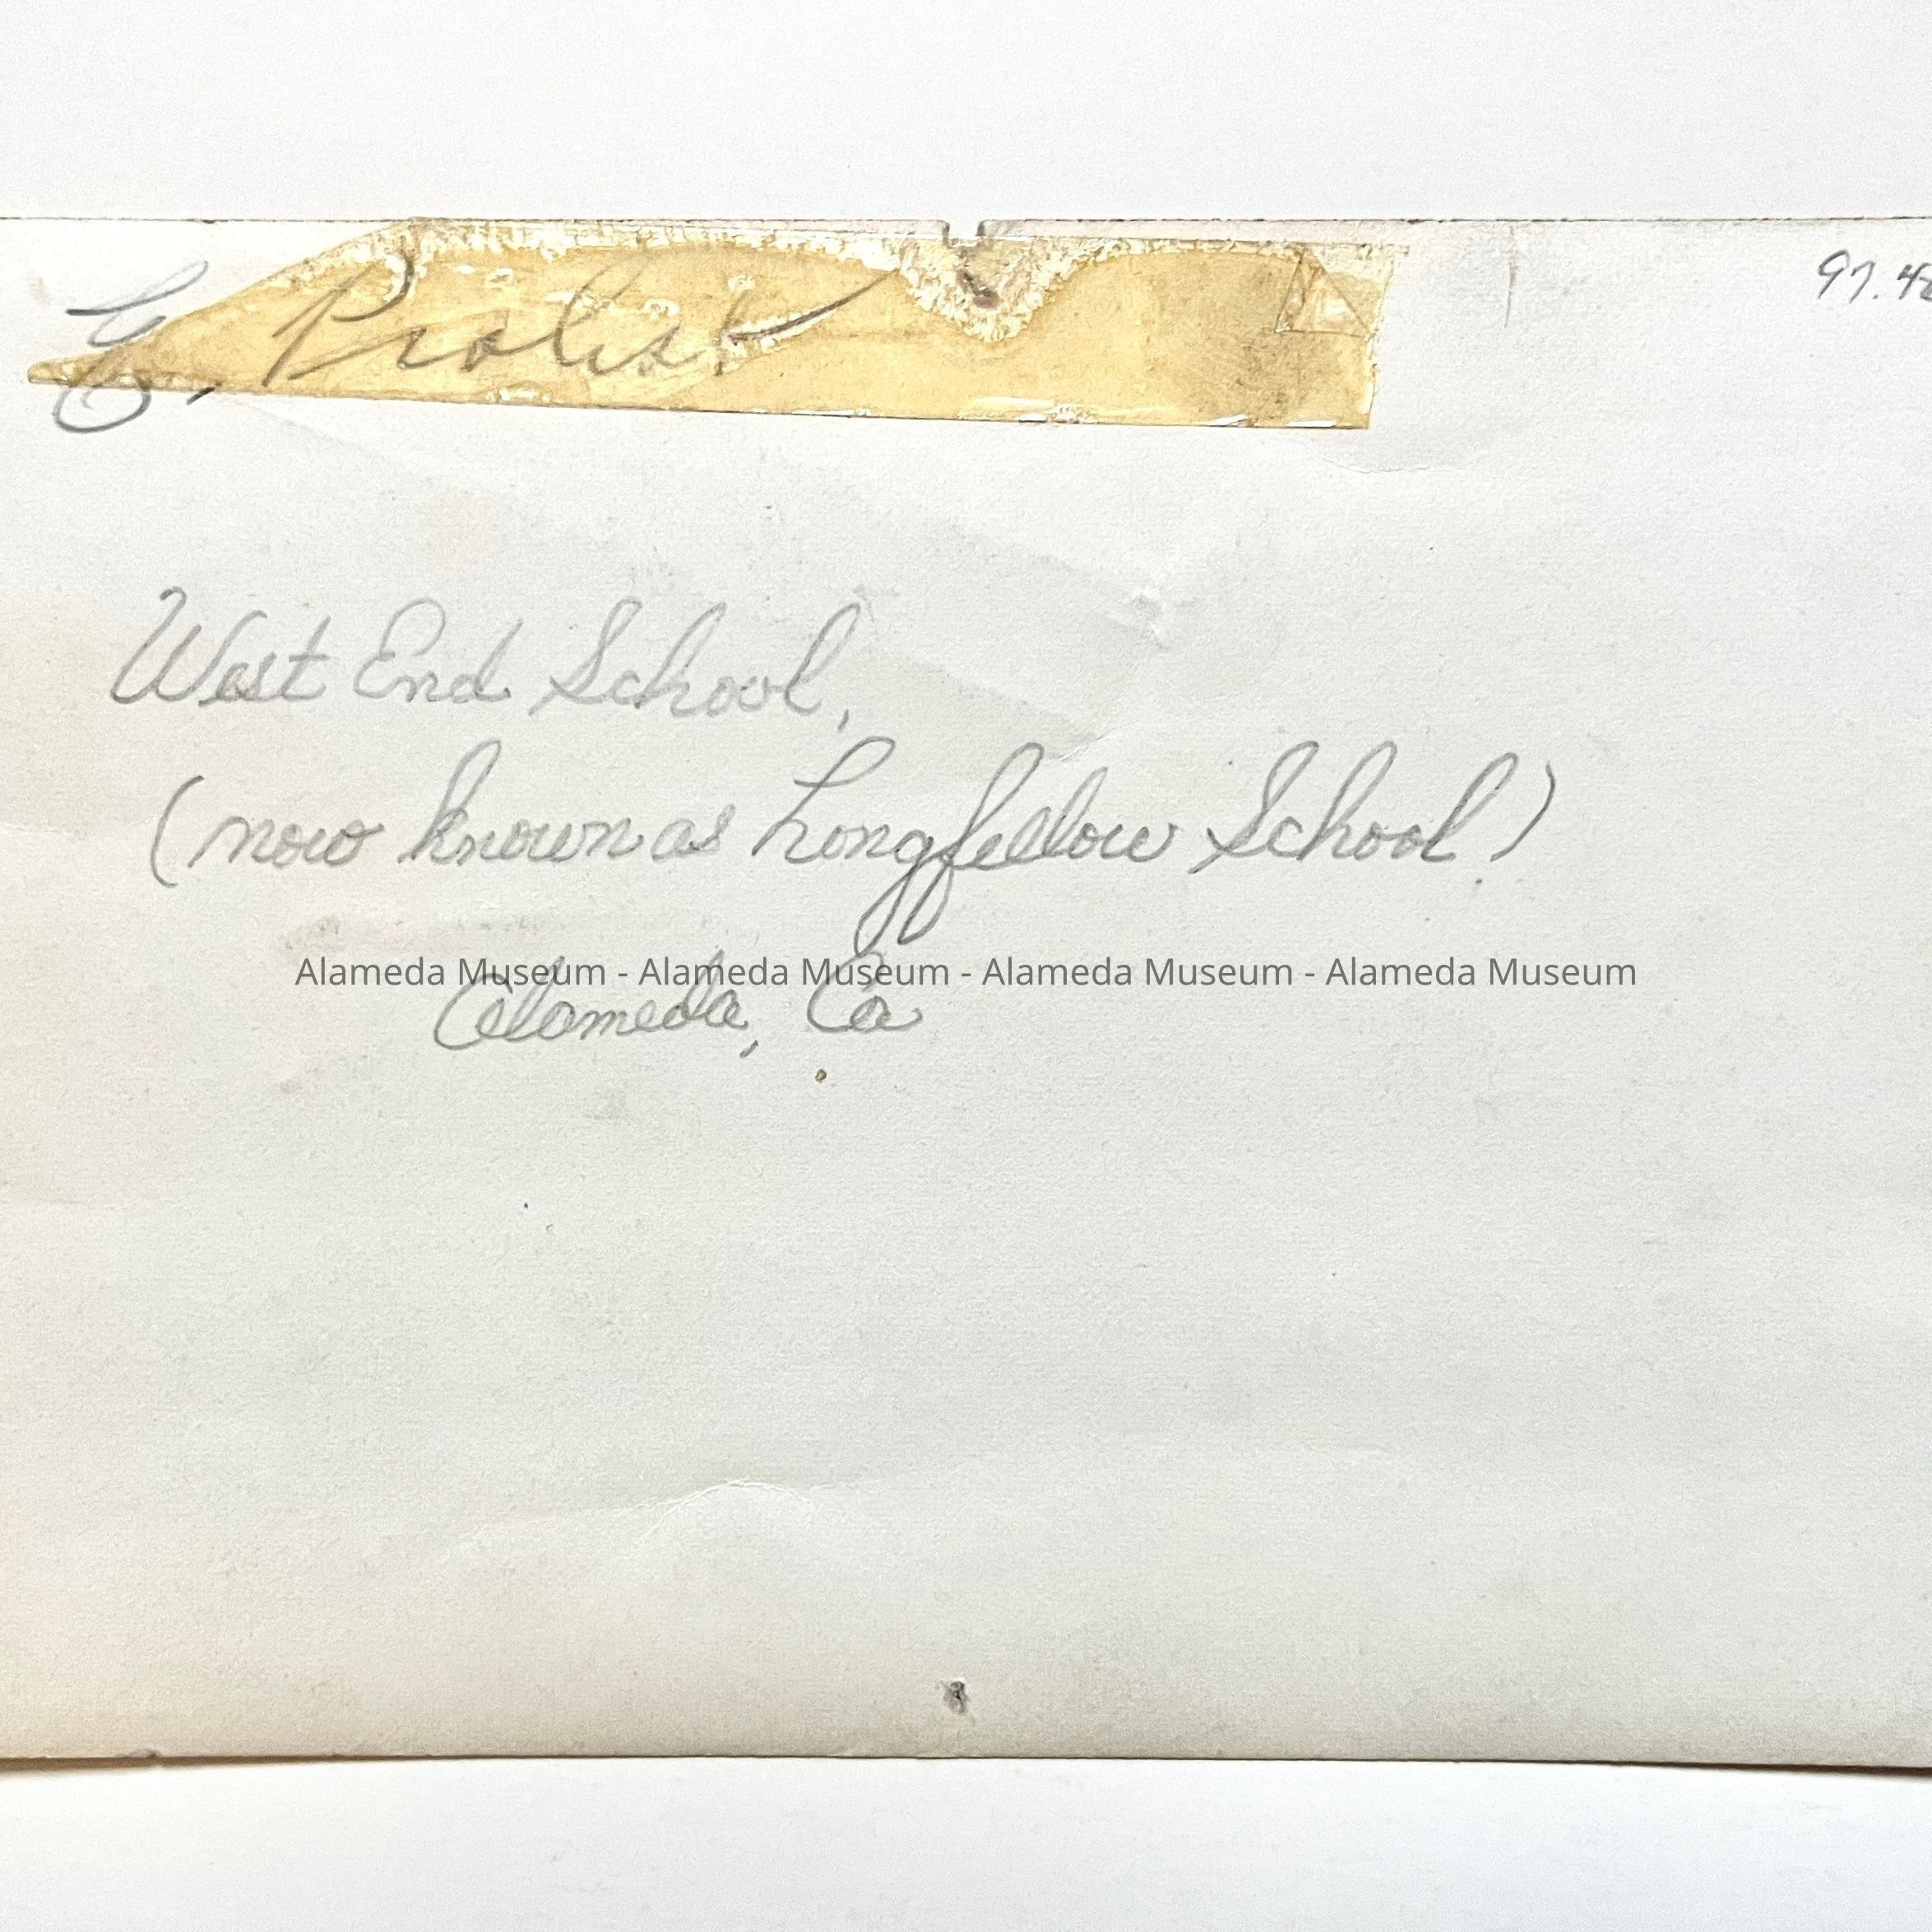 97.48
G. Probst
West End School,
(now known as Longfellow School.)
Alameda Museum - Alameda Museum - Alameda Museum - Alameda Museum
Alameda, Ca